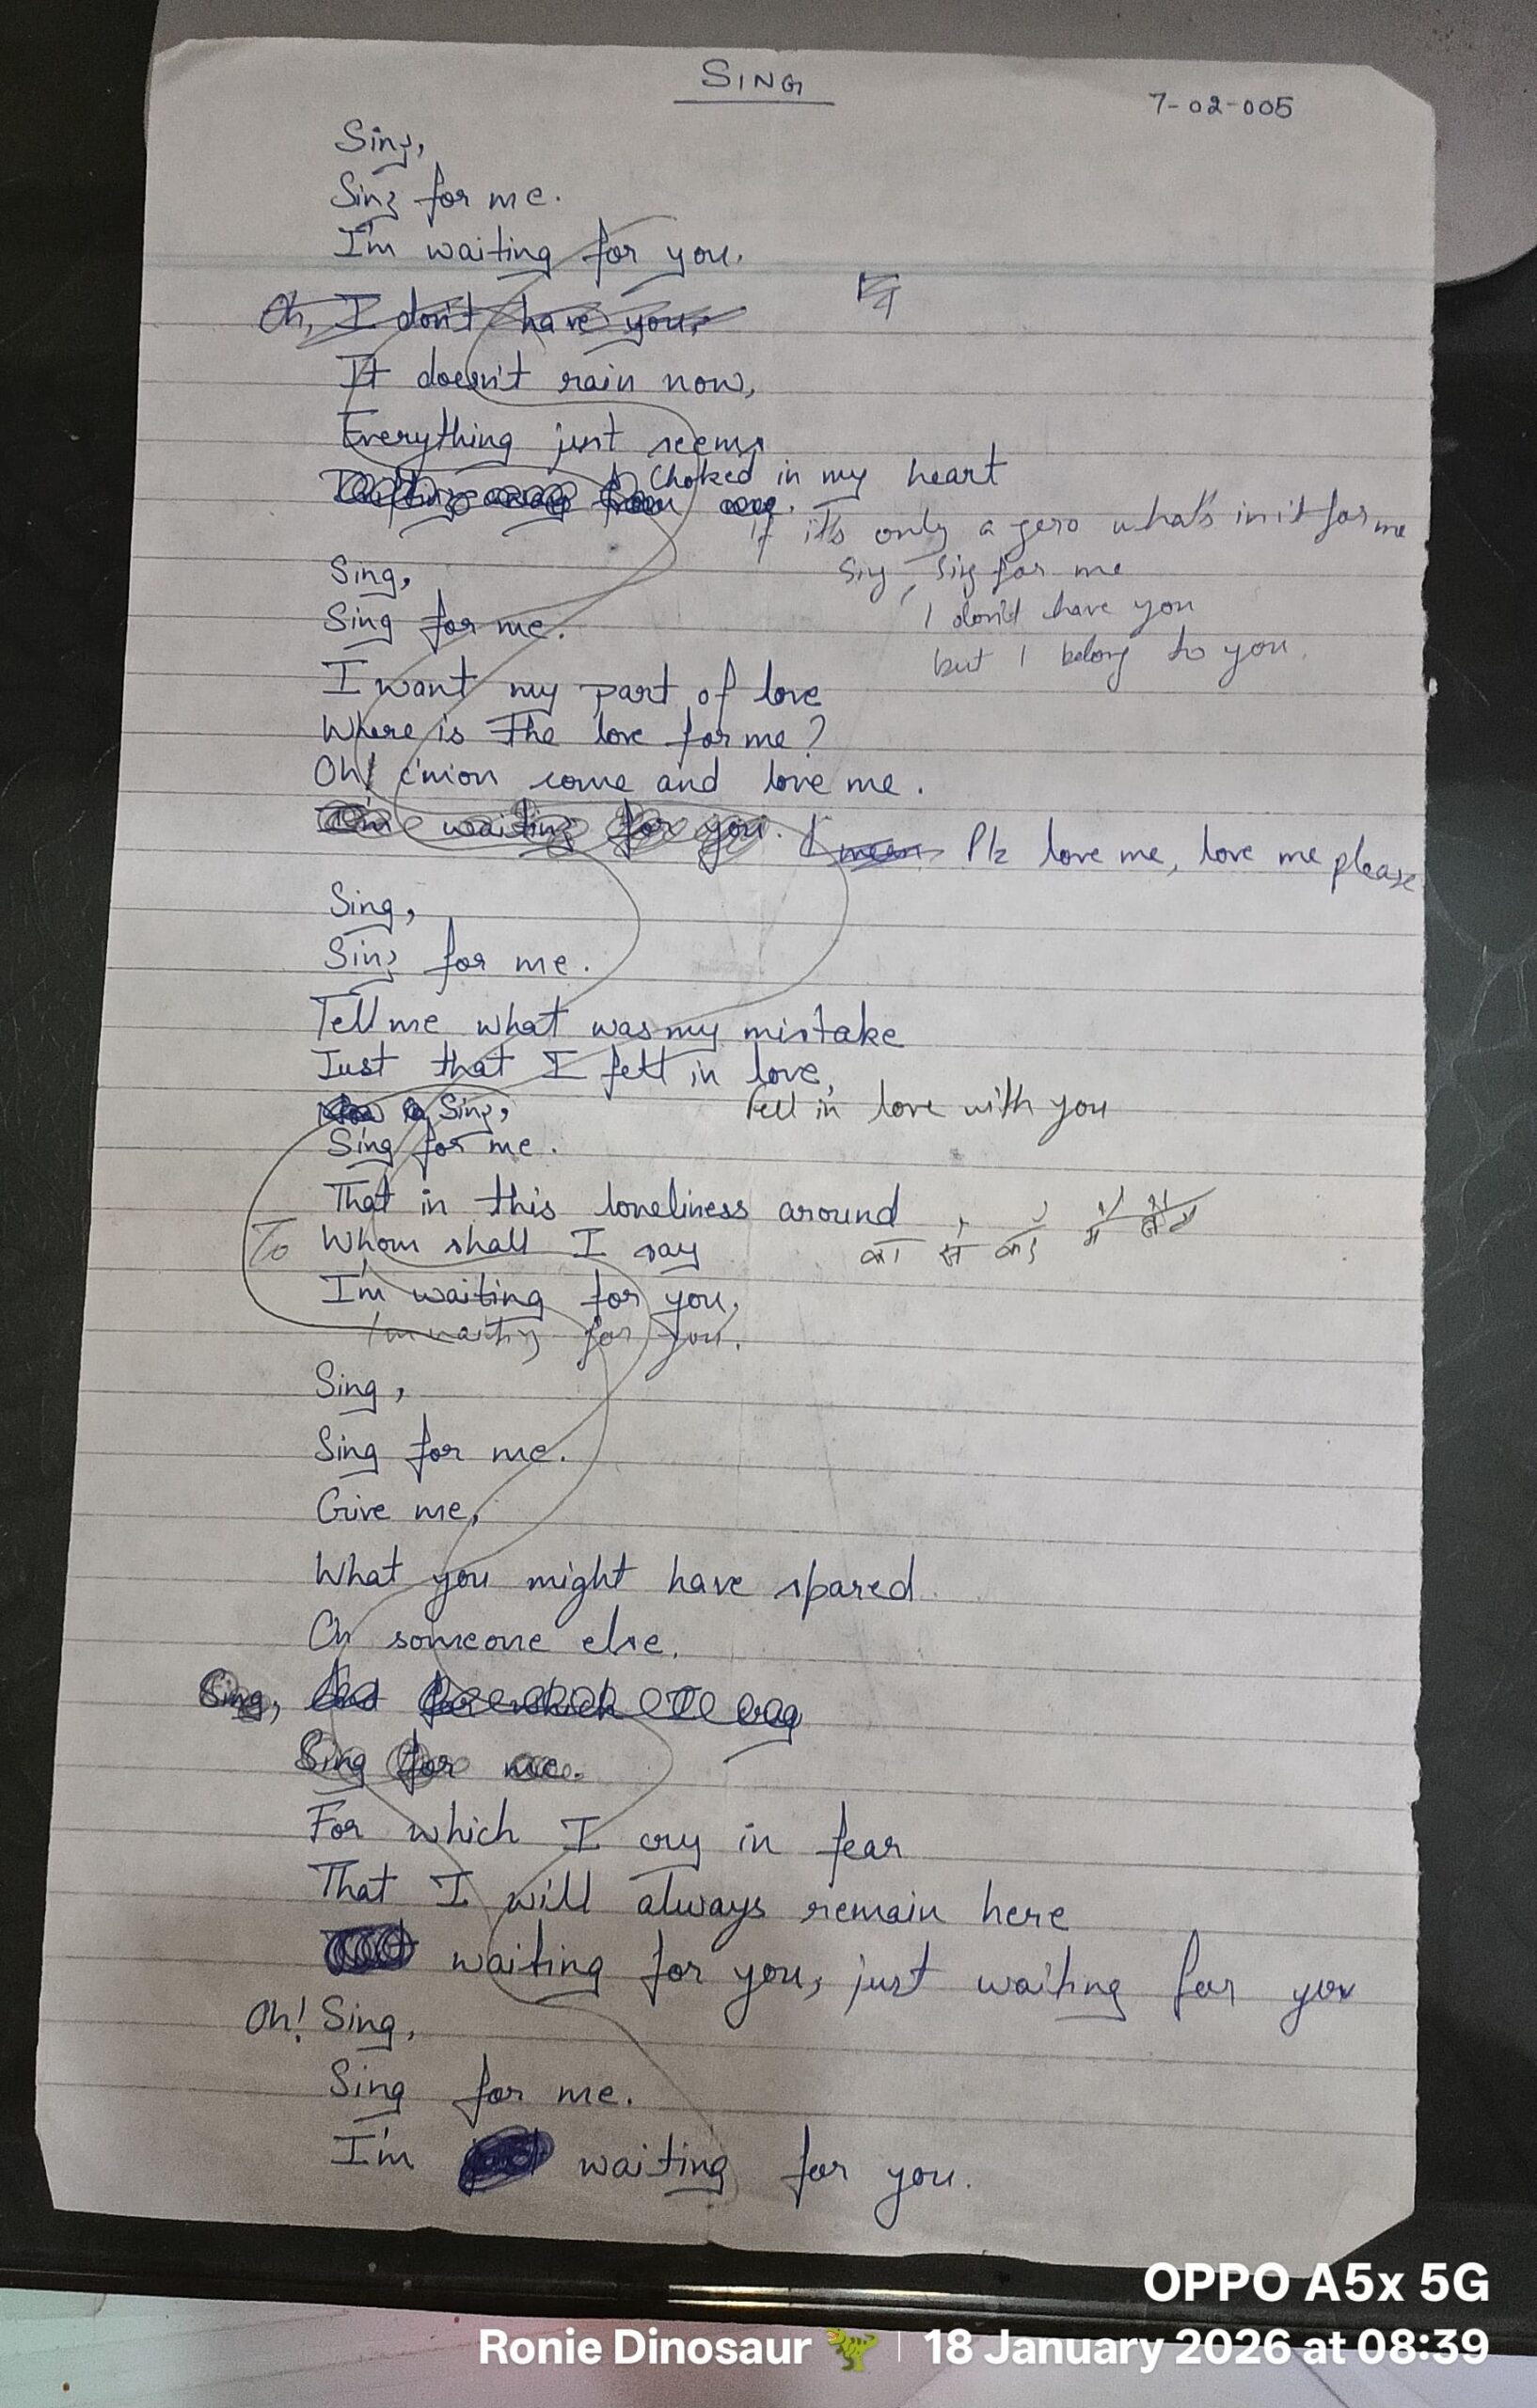 SING
7-02-005
Sing,
Sing for me.
I'm waiting for you.
Oh, I don't have you,
It doesn't rain now,
Everything just seems
Choked in my heart
If it's only a zero what's in it for me
Sing, Sing for me
I don't have you
but I belong to you.
Sing,
Sing for me.
I want my part of love
Where is the love for me?
Oh! c'mon come and love me.
I'm waiting for you. I mean Plz love me, love me please
Sing,
Sing for me.
Tell me what was my mistake
Just that I fell in love,
Sing, fell in love with you
Sing for me.
That in this loneliness around
To Whom shall I say
I'm waiting for you.
I'm waiting for you.
Sing,
Sing for me.
Give me,
What you might have spared
On someone else.
Sing, And for which
Sing for me.
For which I cry in fear
That I will always remain here
waiting for you, just waiting for you
Oh! Sing,
Sing for me.
I'm waiting for you.
OPPO A5x 5G
Ronie Dinosaur 🦖 | 18 January 2026 at 08:39